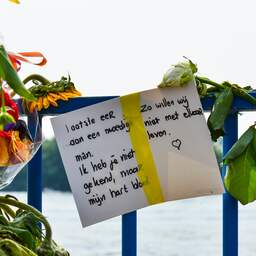 laatste eer
aan een moedige
man.
Ik heb je niet
gekend, maar
mijn hart bloedt
Zo willen wij
niet met elkaar
leven.